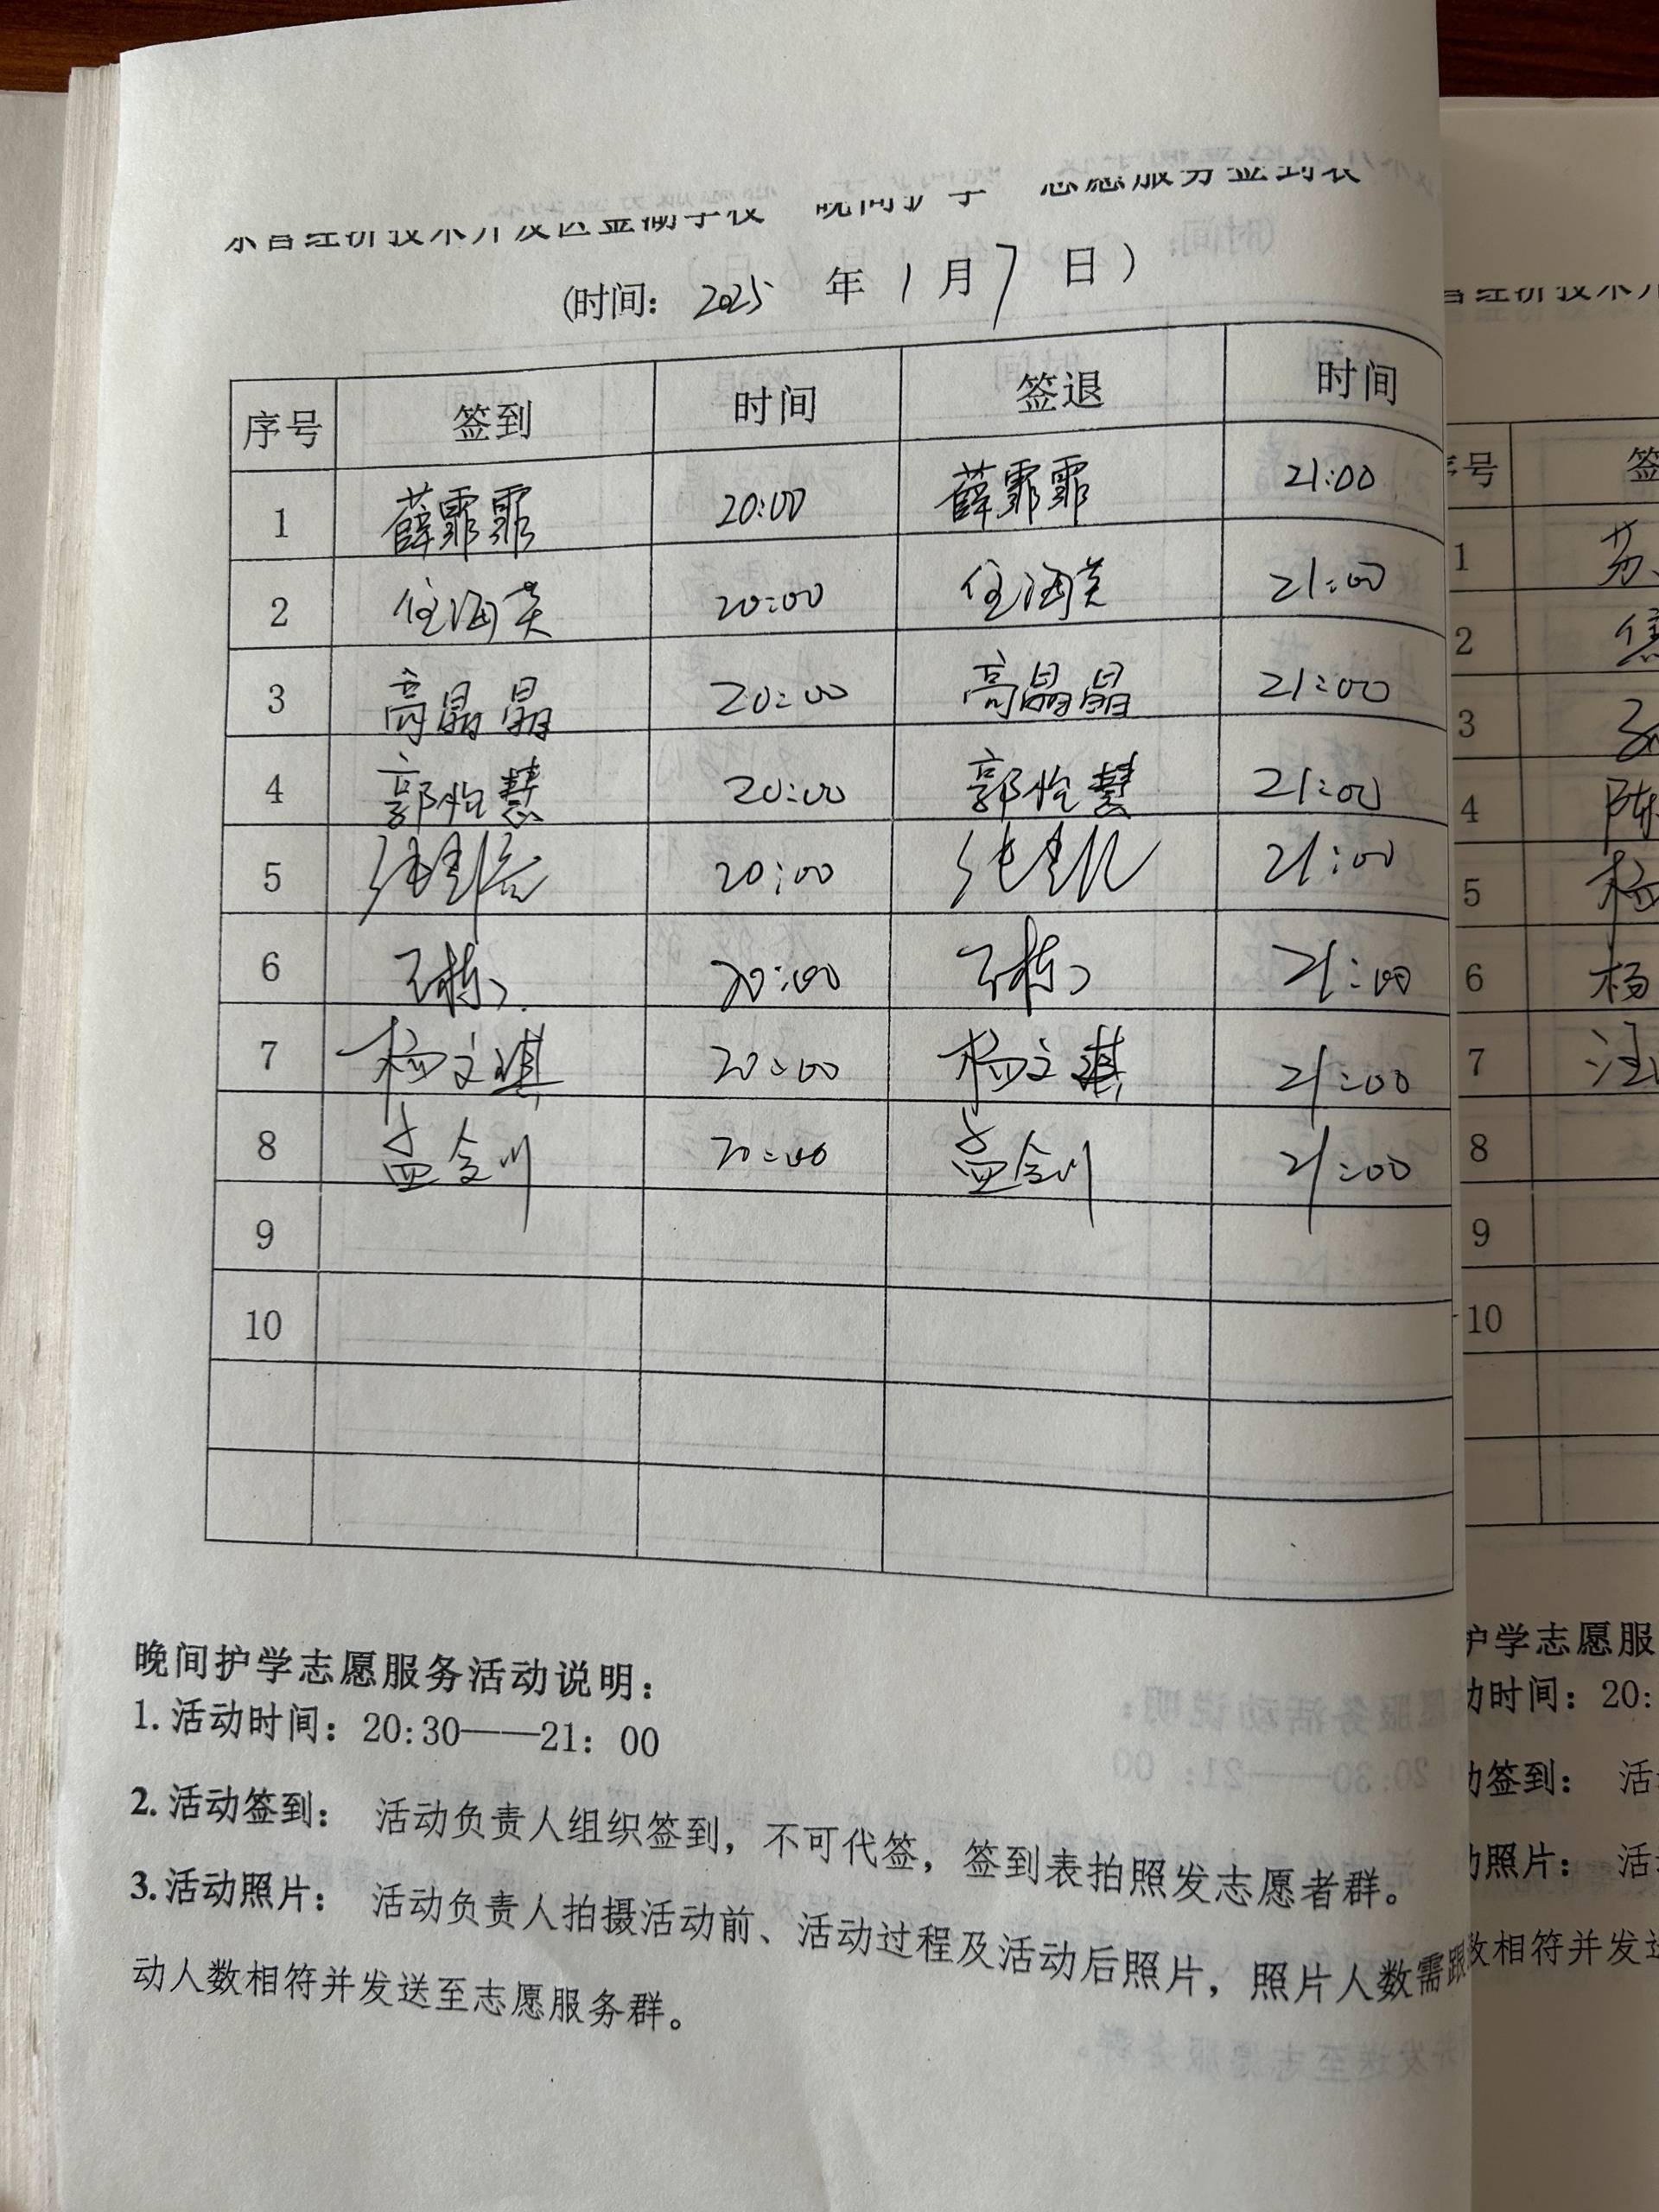 东营经济技术开发区金湖学校 晚间护学 志愿服务签到表
(时间: 2025 年 1 月 7 日)
序号 签到 时间 签退 时间
1 薛霏霏 20:00 薛霏霏 21:00
2 任海英 20:00 任海英 21:00
3 高晶晶 20:00 高晶晶 21:00
4 郭怡慧 20:00 郭怡慧 21:00
5 20:00 21:00
6 20:00 21:00
7 杨文琪 20:00 杨文琪 21:00
8 孟令川 20:00 孟令川 21:00
9
10
晚间护学志愿服务活动说明:
1.活动时间: 20:30——21: 00
2.活动签到: 活动负责人组织签到, 不可代签, 签到表拍照发志愿者群。
3.活动照片: 活动负责人拍摄活动前、活动过程及活动后照片, 照片人数需跟
动人数相符并发送至志愿服务群。
号 签
1 苏
2
3
4 陈
5 杨
6 杨
7 汪
8
9
10
护学志愿服
动时间: 20:
动签到: 活
动照片: 活
数相符并发送